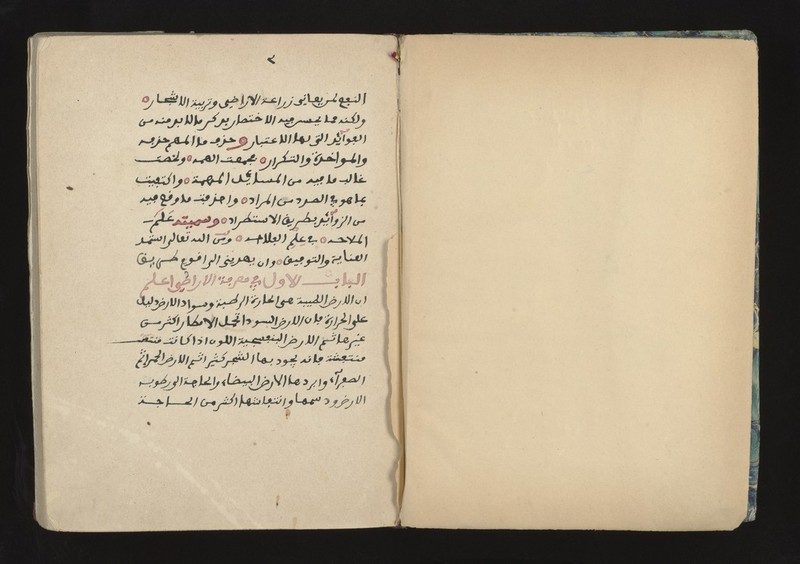 ٢
النفع لمن يعانى زراعة الاراضى وتربية الاشجار
ولكنه مما يحسن فيه الاختصار بذكر ما لا بد منه من
الفوائد التى بها الاعتبار وحذف ما المهم حذفه
والمواخذة والتكرار فجمعت الهمه ولخصت
غالب ما فيه من المسايل المهمة واكتفيت
بما هو فى الصدد من المراد وحذفت ما وقع فيه
من الزوائد بطريق الاستطراد وسميته علم
الملاحه فى علم الفلاحه ومن الله تعالى استمد
العناية والتوفيق وان يهدينى الى اقوم طريق
الباب الاول فى معرفة الاراضى اعلم
ان الارض الطيبة هى الحارة الرطبة وسواد الارض دليل
على الحرارة فان الارض السودا تحمل الامطار اكثر من
غيرها ثم الارض البنفسجية اللون اذا كانت
منتفشة فانه يجود بها الشجر كثيرا ثم الارض الحمرا ثم
الصفرآء وابردها الارض البيضاء والحاجة الى رطوبة
الارض ودسمها وانتفاشها اكثر من الحاجة